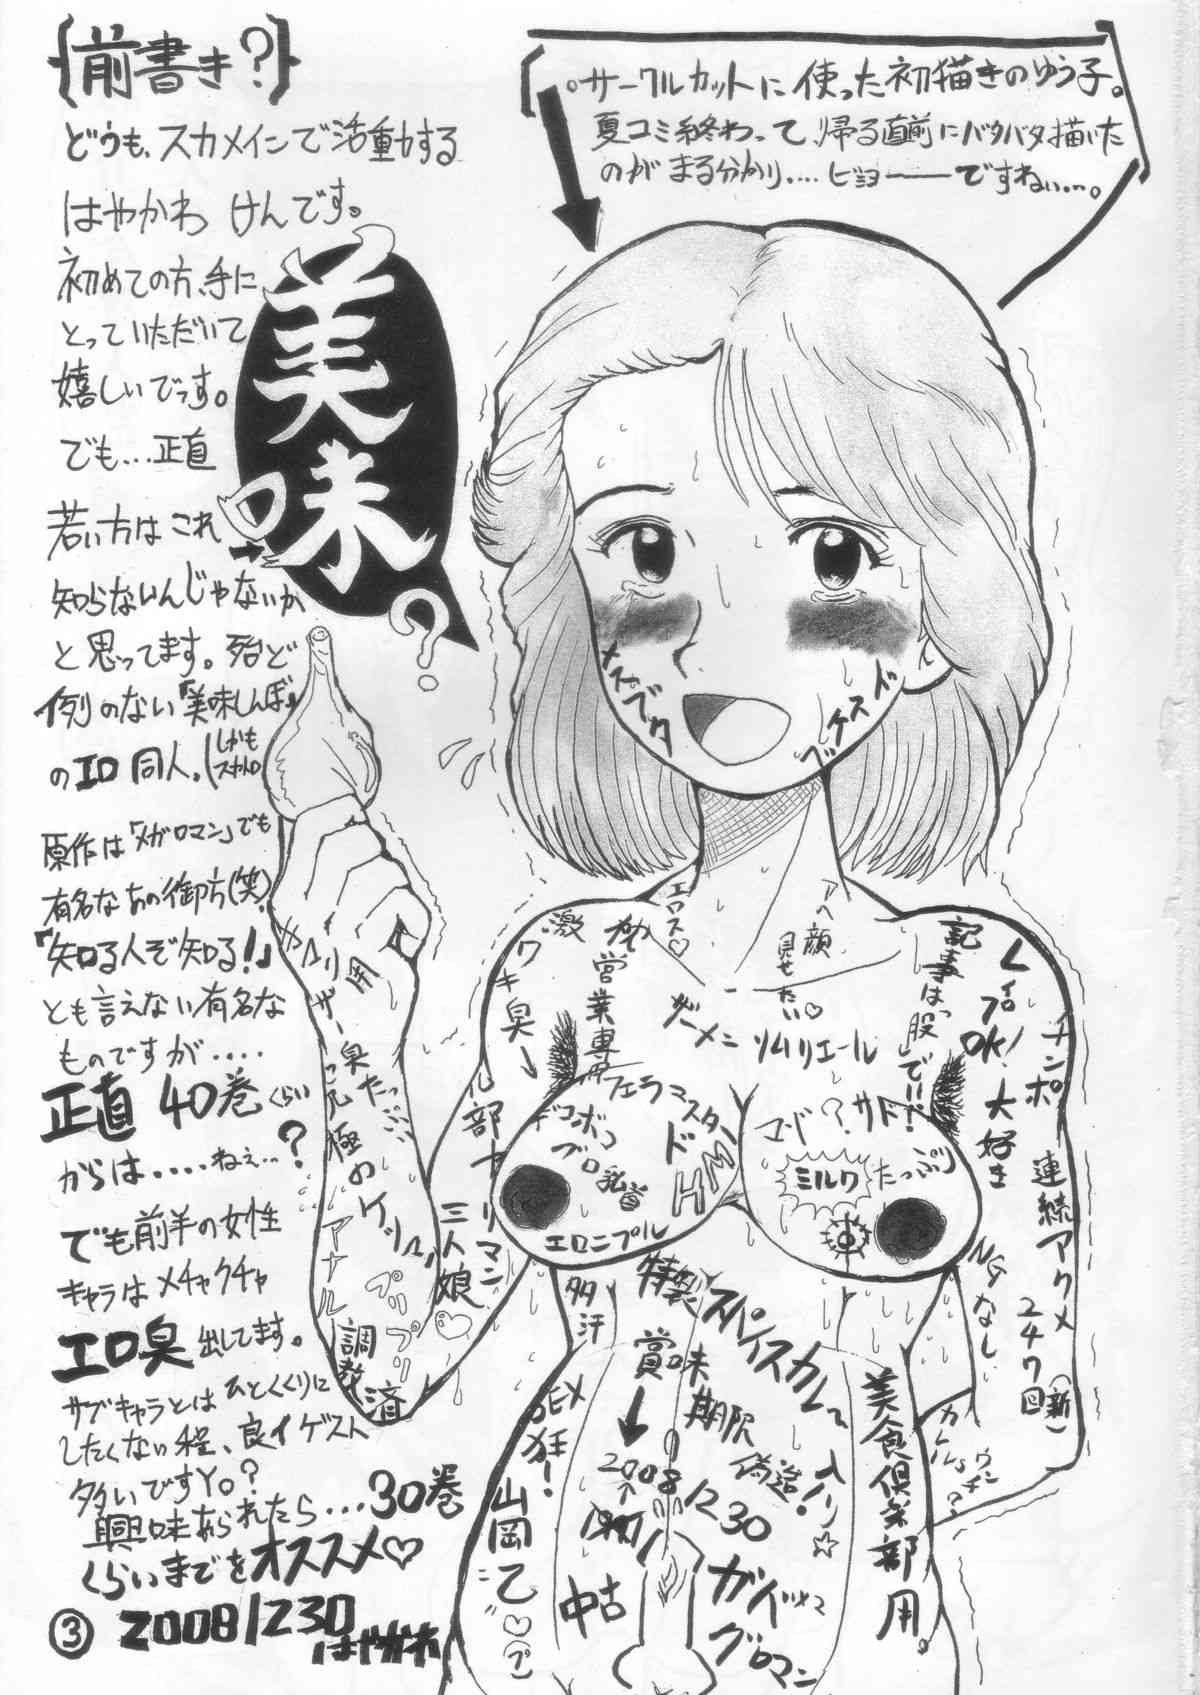 {前書き?}
どうも、スカメインで活動する
はやかわ けんです。
初めての方、手に
とっていただいて
嬉しいでっす。
でも…正直
若い方はこれ
知らないんじゃないか
と思ってます。殆ど
例のない『美味しんぼ』
のエロ同人。(しかも
スカトロ
原作は「メガロマン」でも
有名なあの御方(笑)
『知る人ぞ知る!』
とも言えない有名な
ものですが‥‥
正直 40巻くらい
からは‥‥ねぇ…?
でも前半の女性
キャラはメチャクチャ
エロ臭出してます。
サブキャラとはひとくくりに
したくない程、良イゲスト
多いですYo。?
興味あられたら…30巻
くらいまでをオススメ♡
③ 2008/1230
はやかわ
美味?
。サークルカットに使った初描きのゆう子。
夏コミ終わって、帰る直前にバタバタ描いた
のがまる分かり‥‥ビミョーーですねぃ…。
メスブタ
エロス♡
アヘ顔
見せたい♡
激
ワキ臭→
営業専用
ザーメン
ソムリエール
記事は「股」で!!
レイプOK!大好き
チンポ連続アクメ
247回
(新)
NGなし
フェラマスター
デコボコ
ブロ乳首
ドMH
エロニプル
サド!
ミルク
たっぷり
アナル
調教済
プリプリ
三人娘♡
多汗
特製スパイスカレー入り☆
賞味期限
偽造!
2008
1230
中古
SEX狂!
山岡乙
美食倶楽部用。
グロマン